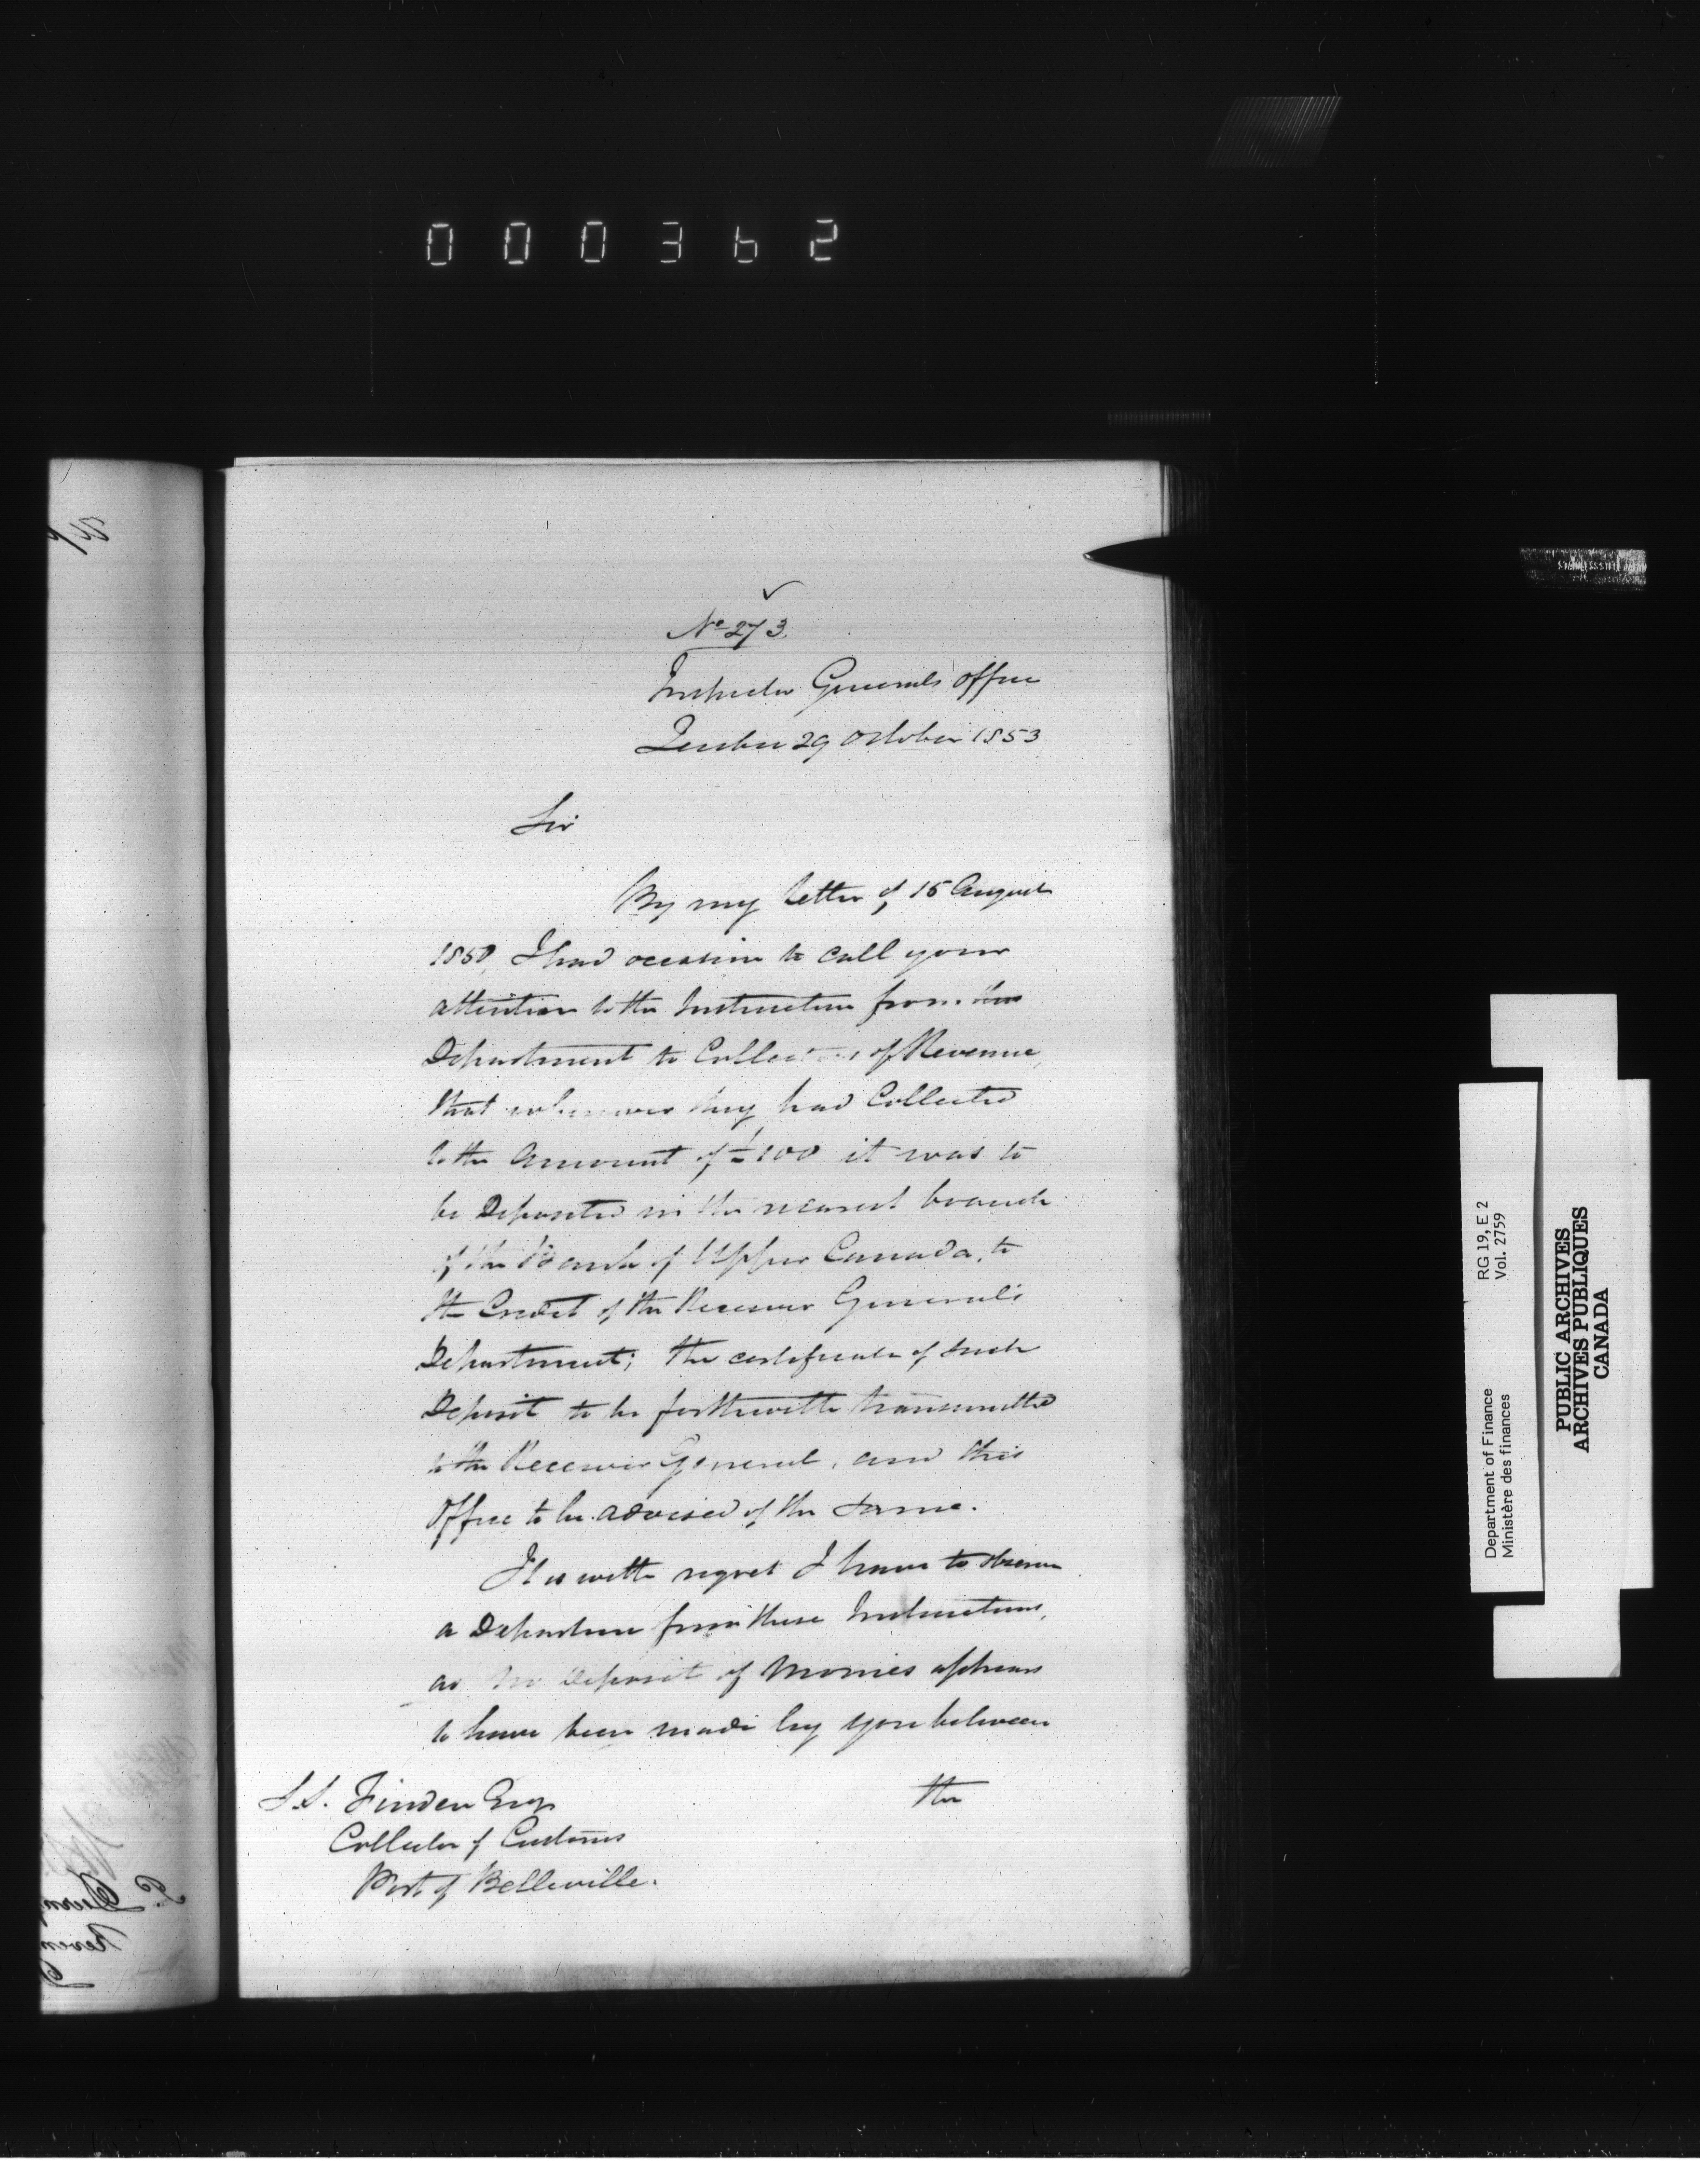 000362
No 273.
Inspector Generals Office
Quebec 29 October 1853
Sir
By my letter of 15 August
1850, I had occasion to call your
attention to the Instruction from this
Department to Collectors of Revenue,
that whenever they had Collected
to the Amount of £100 it was to
be Deposited in the nearest branch
of the Bank of Upper Canada, to
the Credit of the Receiver General's
Department; the certificate of such
Deposit to be forthwith transmitted
to the Receiver General, and this
Office to be advised of the same.
It is with regret I have to observe
a Departure from these Instructions,
as no Deposit of Monies appears
to have been made by you between
the
S.S. Finden Esqr
Collector of Customs
Port of Belleville.
Department of Finance RG 19, E 2
Ministère des finances Vol. 2759
PUBLIC ARCHIVES
ARCHIVES PUBLIQUES
CANADA